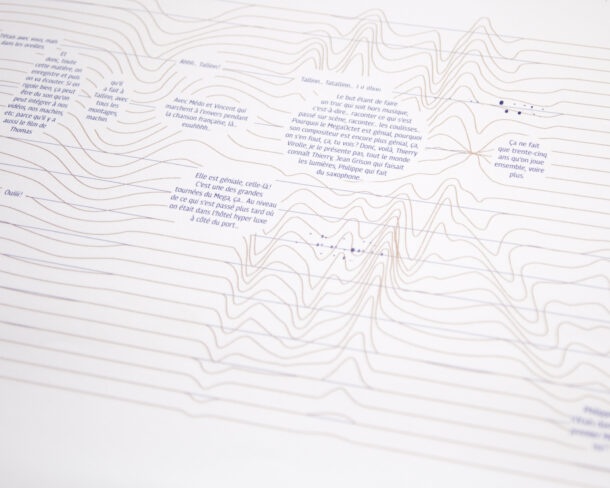 J'étais avec vous, mais
dans les oreilles
Et
donc, toute
cette matière, on
enregistre et puis
on va écouter. Si on
rigole bien, ça peut
être du son qu'on
peut intégrer à nos
vidéos, nos machins,
etc. parce qu'il y a
aussi le film de
Thomas
qu'il
a fait à
Tallinn, avec
tous les
montages,
machin
Ouiii!
Ahhh.. Tallinn!
Avec Médo et Vincent qui
marchent à l'envers pendant
la chanson française, là..
rouhhhh..
Elle est géniale, celle-là!
C'est une des grandes
tournées du Mega, ça.. Au niveau
de ce qui s'est passé plus tard où
on était dans l'hôtel hyper luxe
à côté du port..
Tallinn..
Le but étant de faire
un truc qui soit hors musique,
c'est-à-dire.. raconter ce qui s'est
passé sur scène, raconter.. les coulisses..
Pourquoi le MegaOctet est génial, pourquoi
son compositeur est encore plus génial, ça,
on s'en fout, ça, tu vois ? Donc, voilà, Thierry
Virolle, je le présente pas, tout le monde
connaît Thierry, Jean Grison qui faisait
les lumières, Philippe qui fait
du saxophone..
Ça ne fait
que trente-cinq
ans qu'on joue
ensemble, voire
plus.